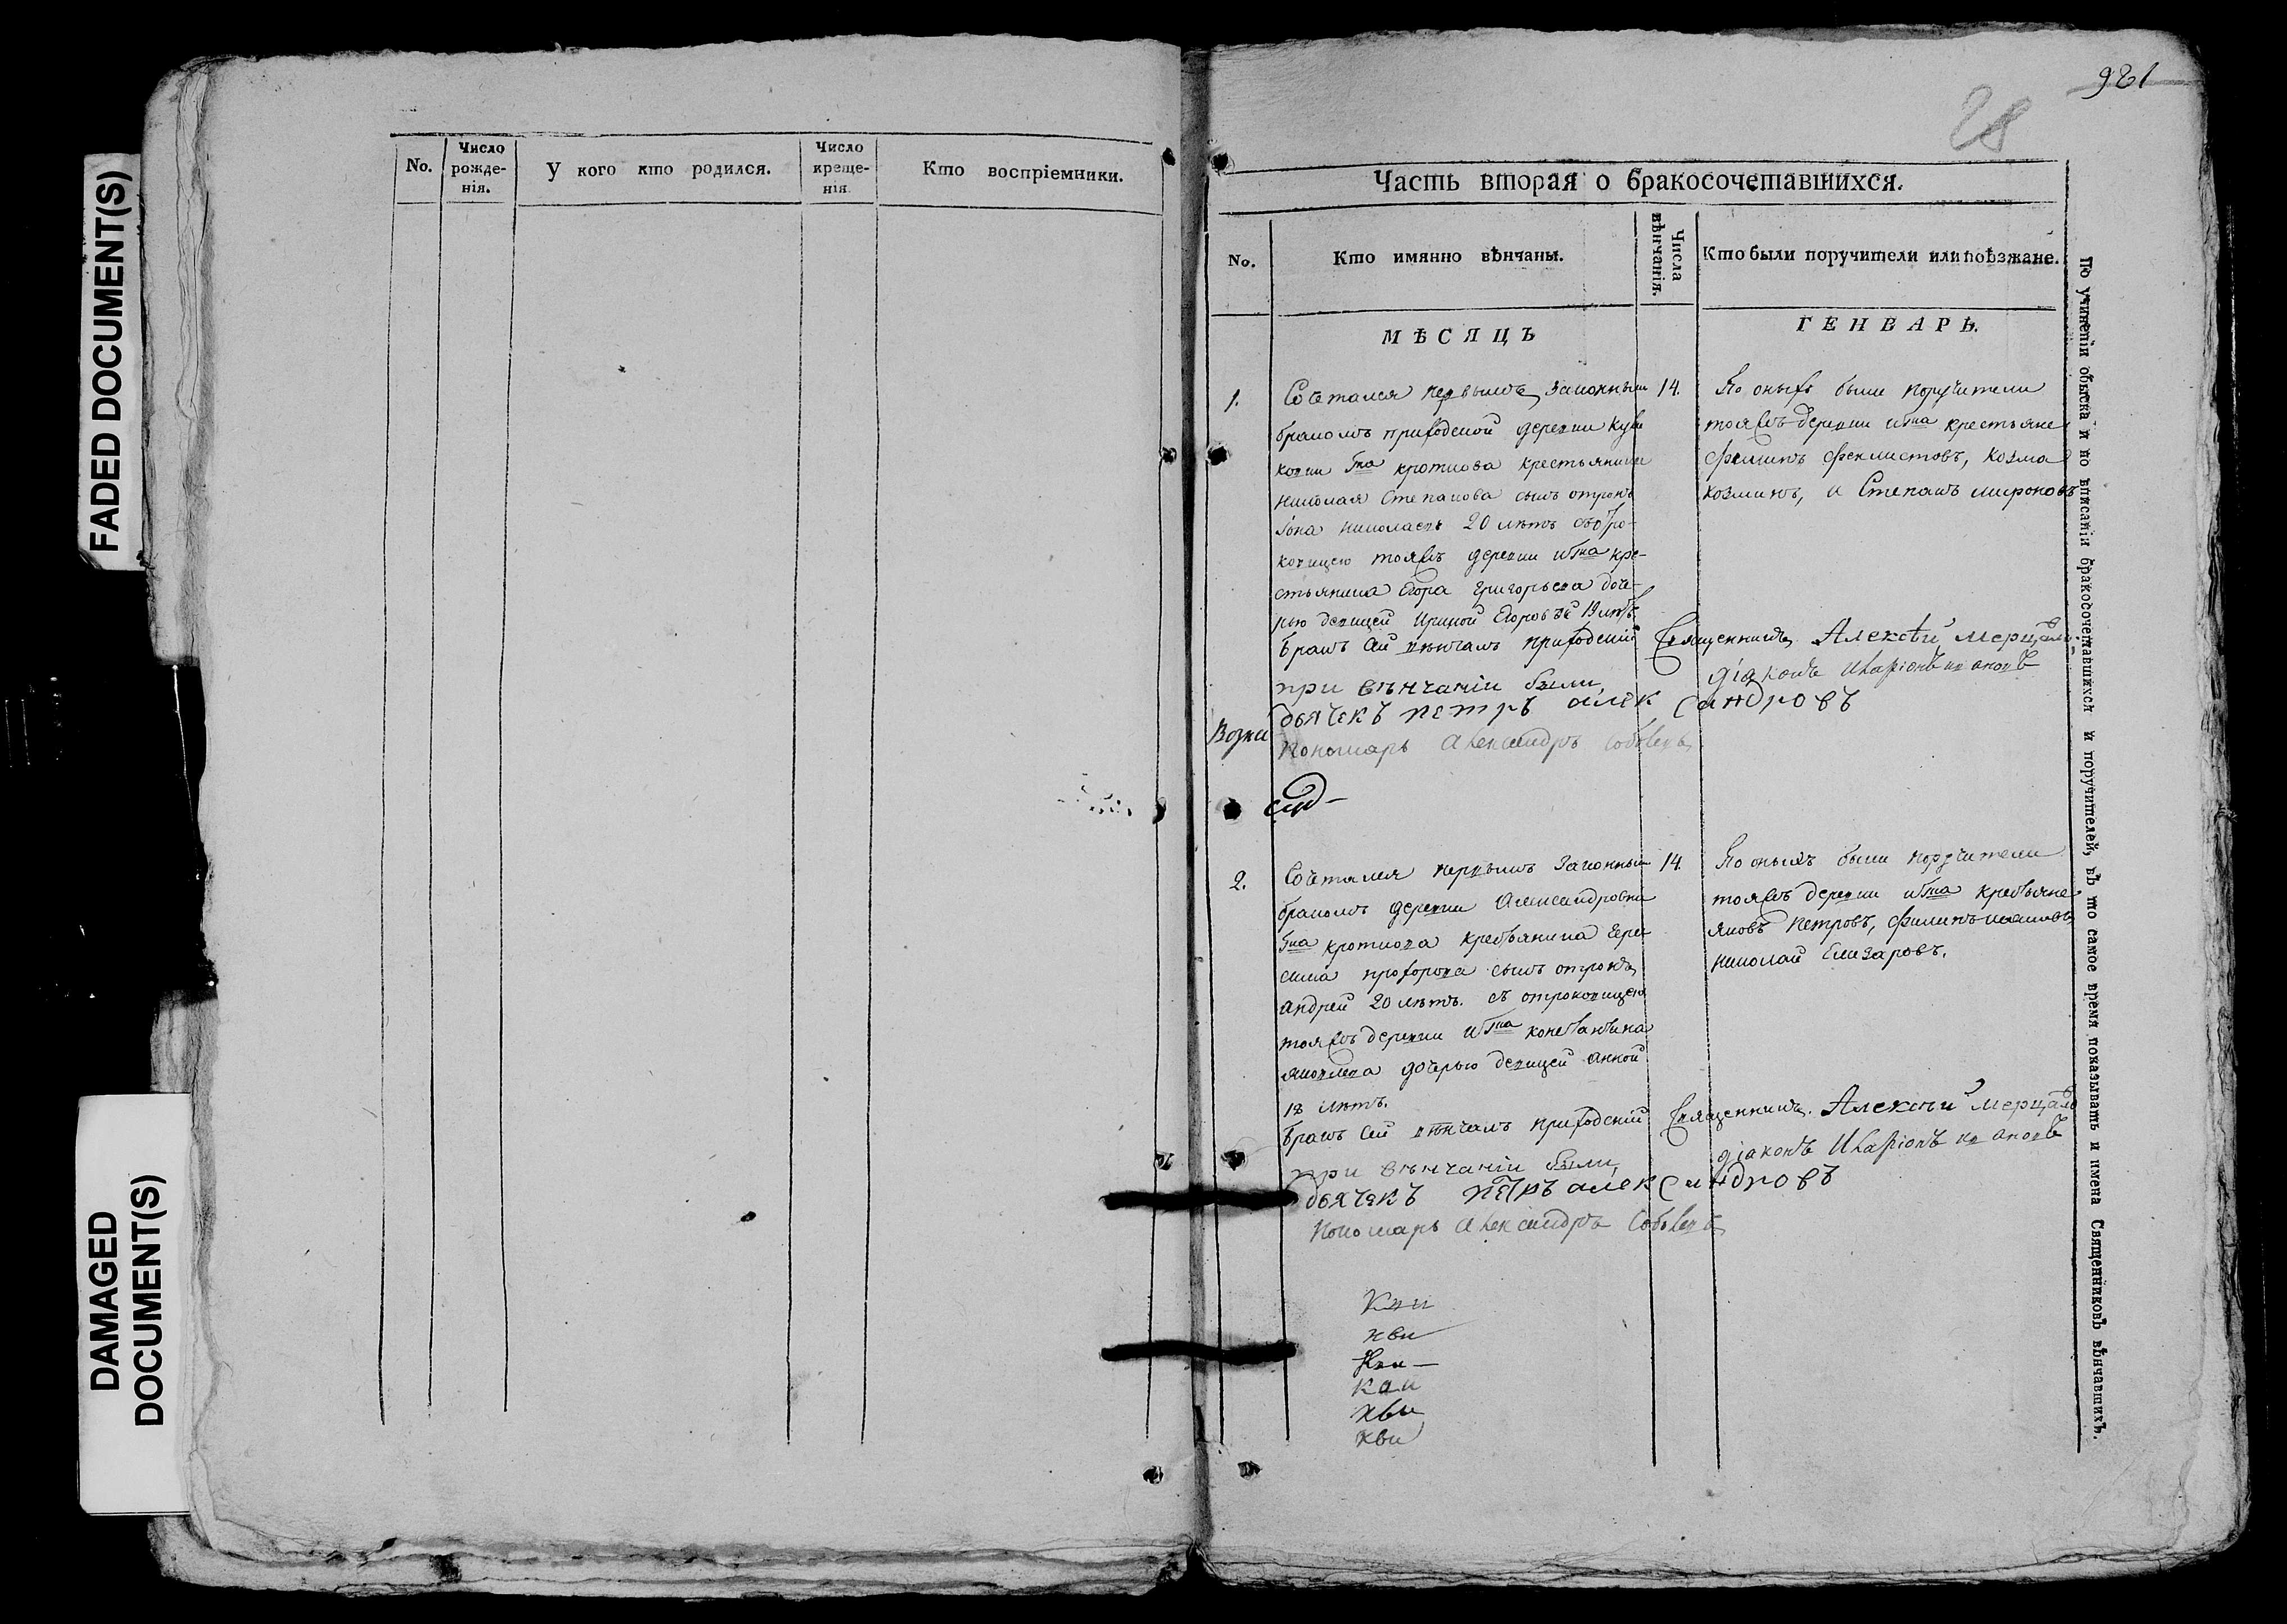 FADED DOCUMENT(S)
DAMAGED
DOCUMENT(S)
No.
Число
рожде-
нія.
У кого кто родился.
Число
креще-
нія.
Кто воспріемники.
981
28
Часть вторая о бракосочетавшихся.
No.
Кто имянно вѣнчаны.
Числа
вѣнчанія.
Кто были поручители или поѣзжане.
МѢСЯЦЪ
ГЕНВАРЬ.
1.
Сочетался первымъ законным
бракомъ приходской деревни
Гна кроткова крестьянина
николая Степанова сынъ отрокъ
Іона николаевъ 20 лѣтъ съ отро-
ковицею тояжъ деревни и Гна кре-
стьянина Егора григорьева доче-
рью девицей Ириной Егоровой 19 лѣтъ
14.
По оныхъ были поручители
тояжъ деревни и Гна крестьяне
филипъ феклистовъ, козма
козминъ, и Степанъ мироновъ
бракъ сей вѣнчалъ приходскій Священникъ Алексѣй мерцалов
при вѣнчаніи были, діаконъ Иларіонъ
дьячекъ петръ александровъ
пономарь Александръ
2.
Сочетался первымъ законным
бракомъ деревни Александровки
Гна кроткова крестьянина Гера
сима прохорова сынъ отрокъ
андрей 20 лѣтъ. съ отроковицею
тояжъ деревни и Гна константина
яковлева дочерью девицей анной
18 лѣтъ.
14.
По оныхъ были поручители
тояжъ деревни и Гна крестьяне
яковъ петровъ, филипъ
николай Елизаровъ.
бракъ сей вѣнчалъ приходскій Священникъ. Алексѣй мерцалов
при вѣнчаніи были, діаконъ Иларіонъ
дьячекъ петръ александровъ
пономарь Александръ
По учиненіи обыска и по вписаніи бракосочетавшихся и поручителей, въ то самое время показывать и имена Священниковъ вѣнчавшихъ.